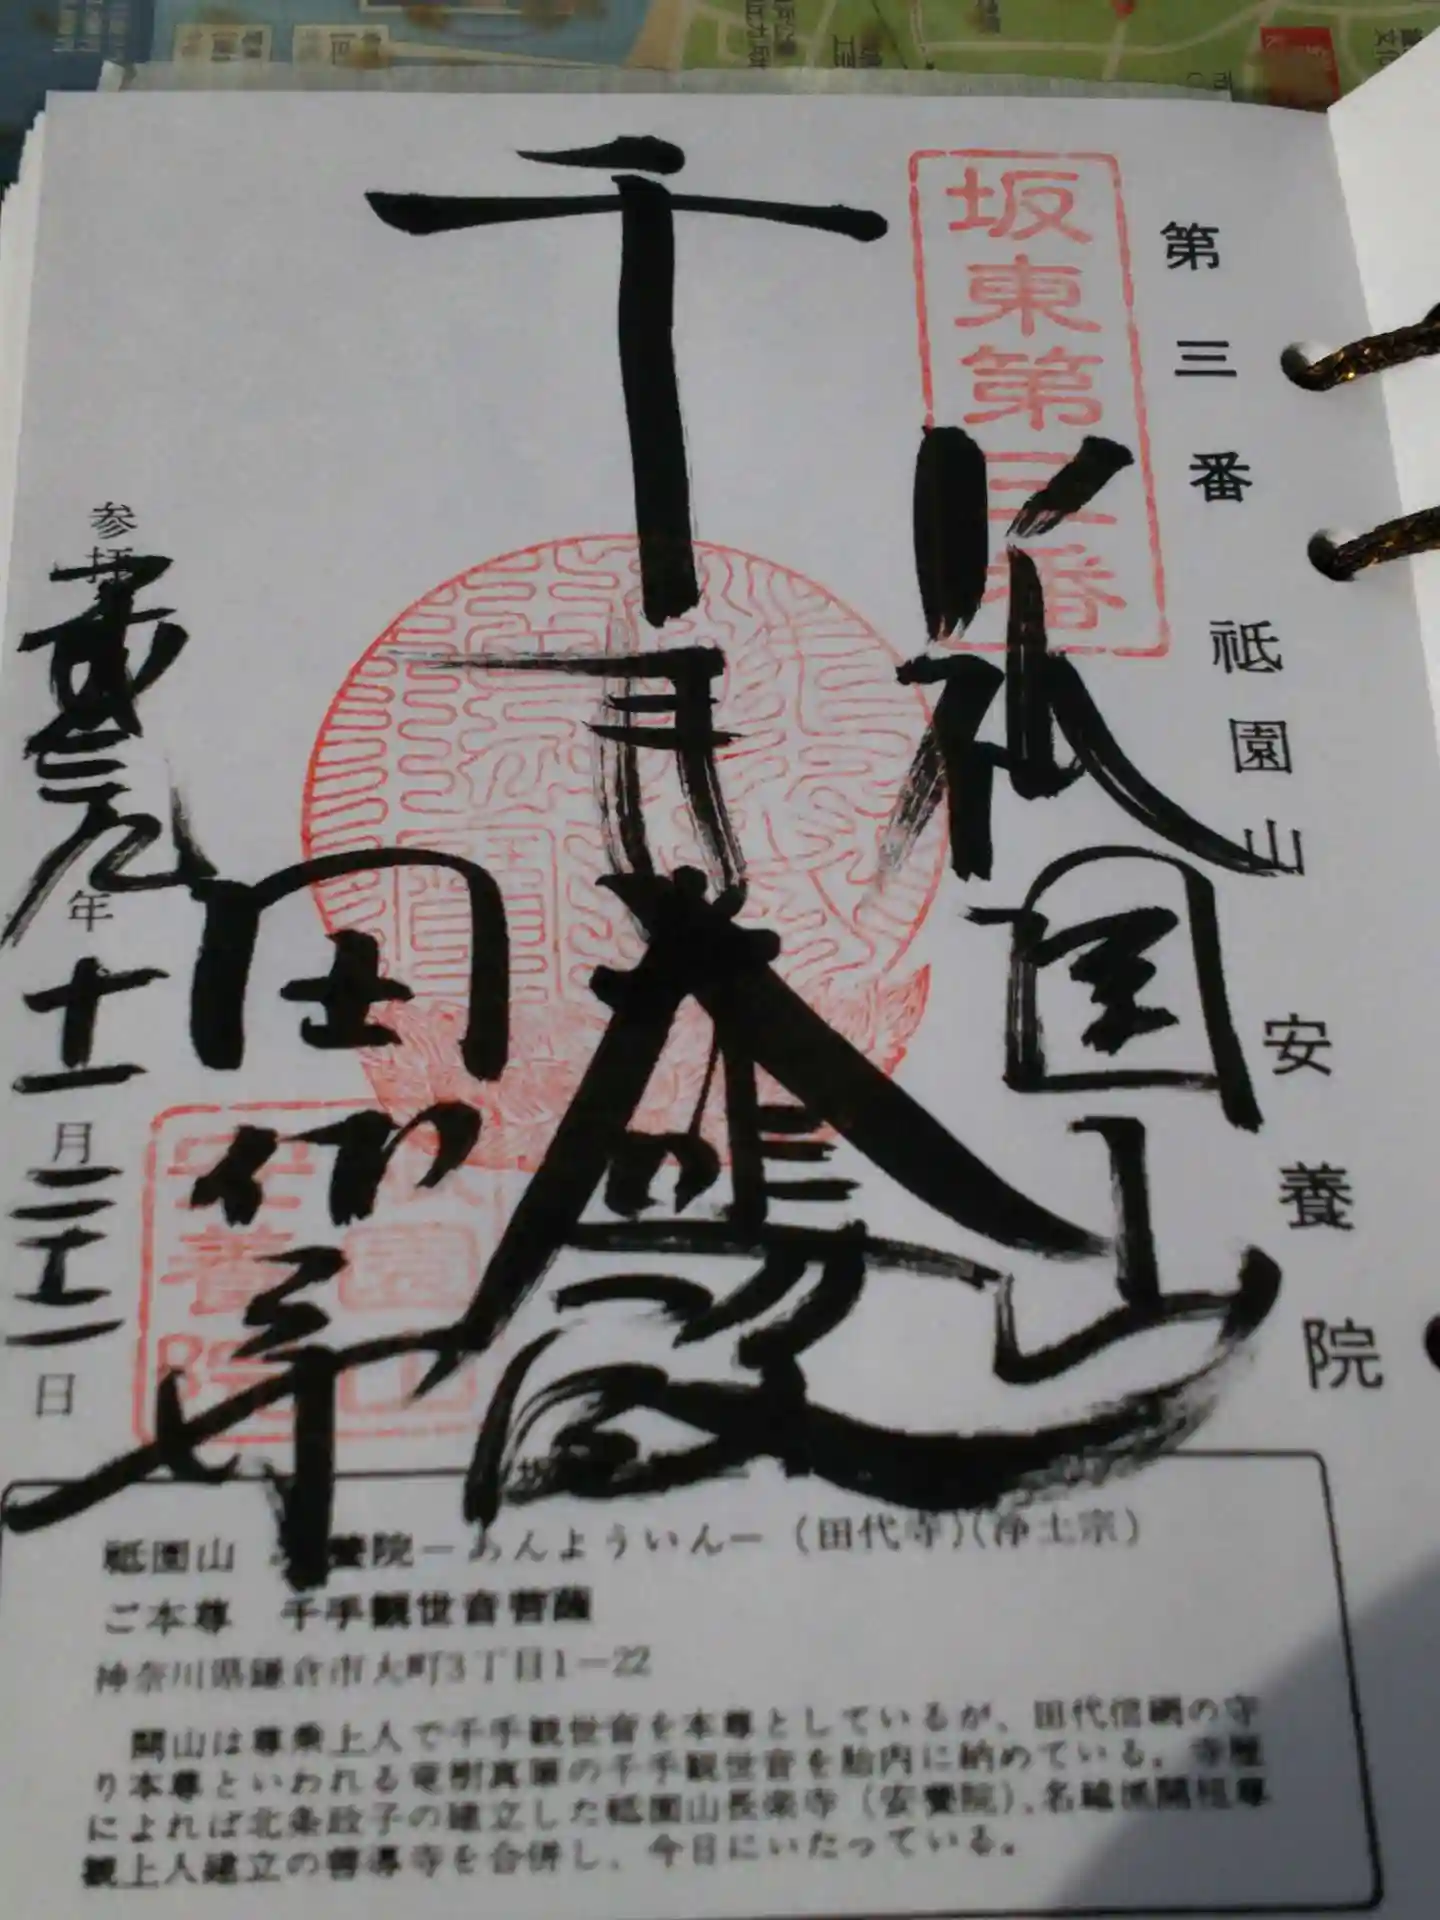 第三番 祗園山 安養院
坂東第三番
祇園山
千手大悲殿
田代寺
安養院
参拝
年十一月二十二日
祗園山 安養院－あんよういん－（田代寺）（浄土宗）
ご本尊 千手観世音菩薩
神奈川県鎌倉市大町3丁目1－22
開山は尊乗上人で千手観世音を本尊としているが、田代信綱の守
り本尊といわれる の千手観世音を胎内に納めている。寺歴
によれば北条政子の建立した祗園山長楽寺（安養院）、名越派開祖尊
観上人建立の善導寺を合併し、今日にいたっている。